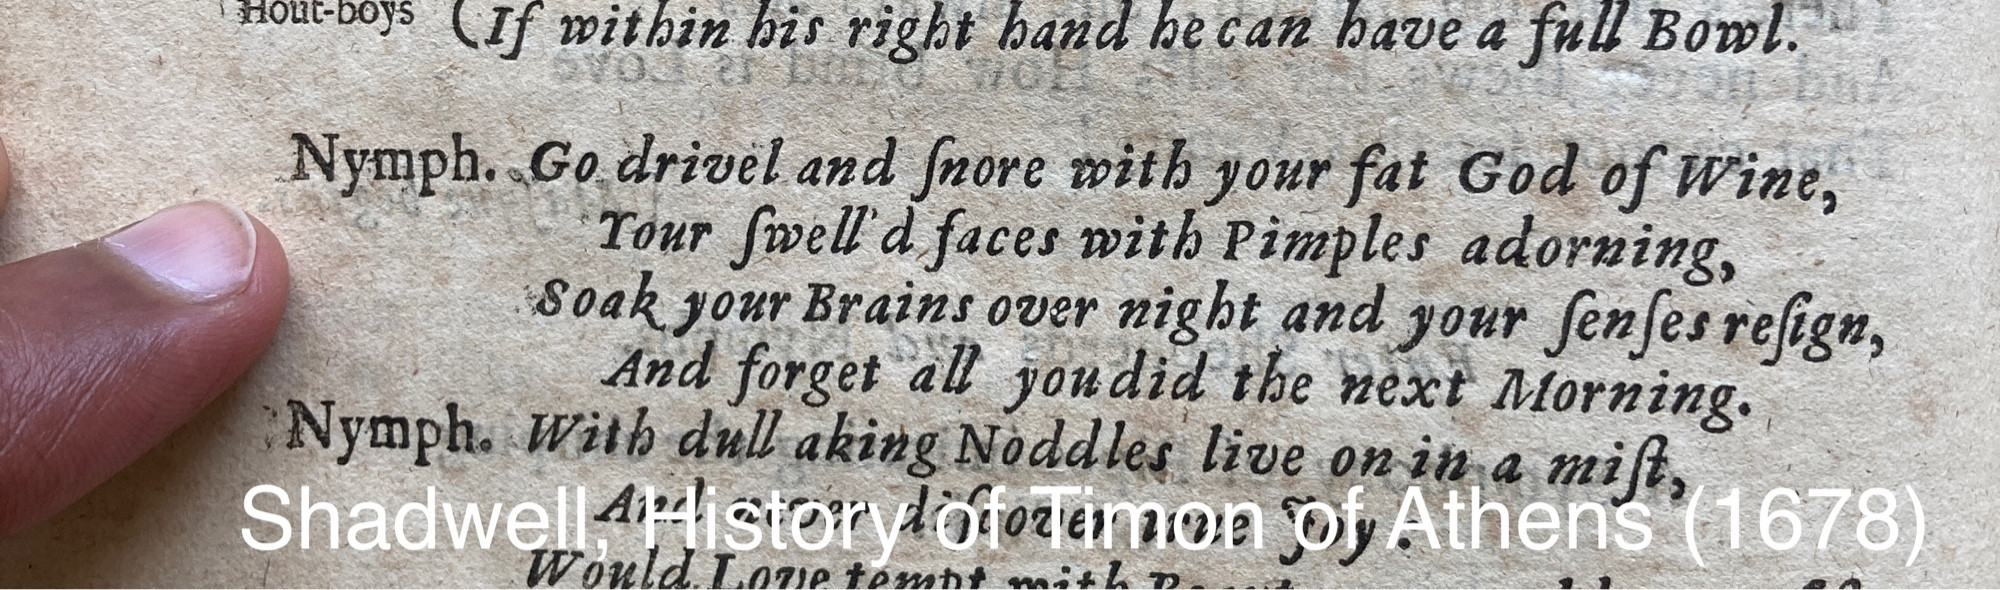 Hout-boys (If within his right hand he can have a full Bowl.
Nymph. Go drivel and ſnore with your fat God of Wine,
Your ſwell'd faces with Pimples adorning,
Soak your Brains over night and your ſenſes reſign,
And forget all you did the next Morning.
Nymph. With dull aking Noddles live on in a miſt,
And never diſcover true Joy:
Shadwell, History of Timon of Athens (1678)
Would Love tempt with